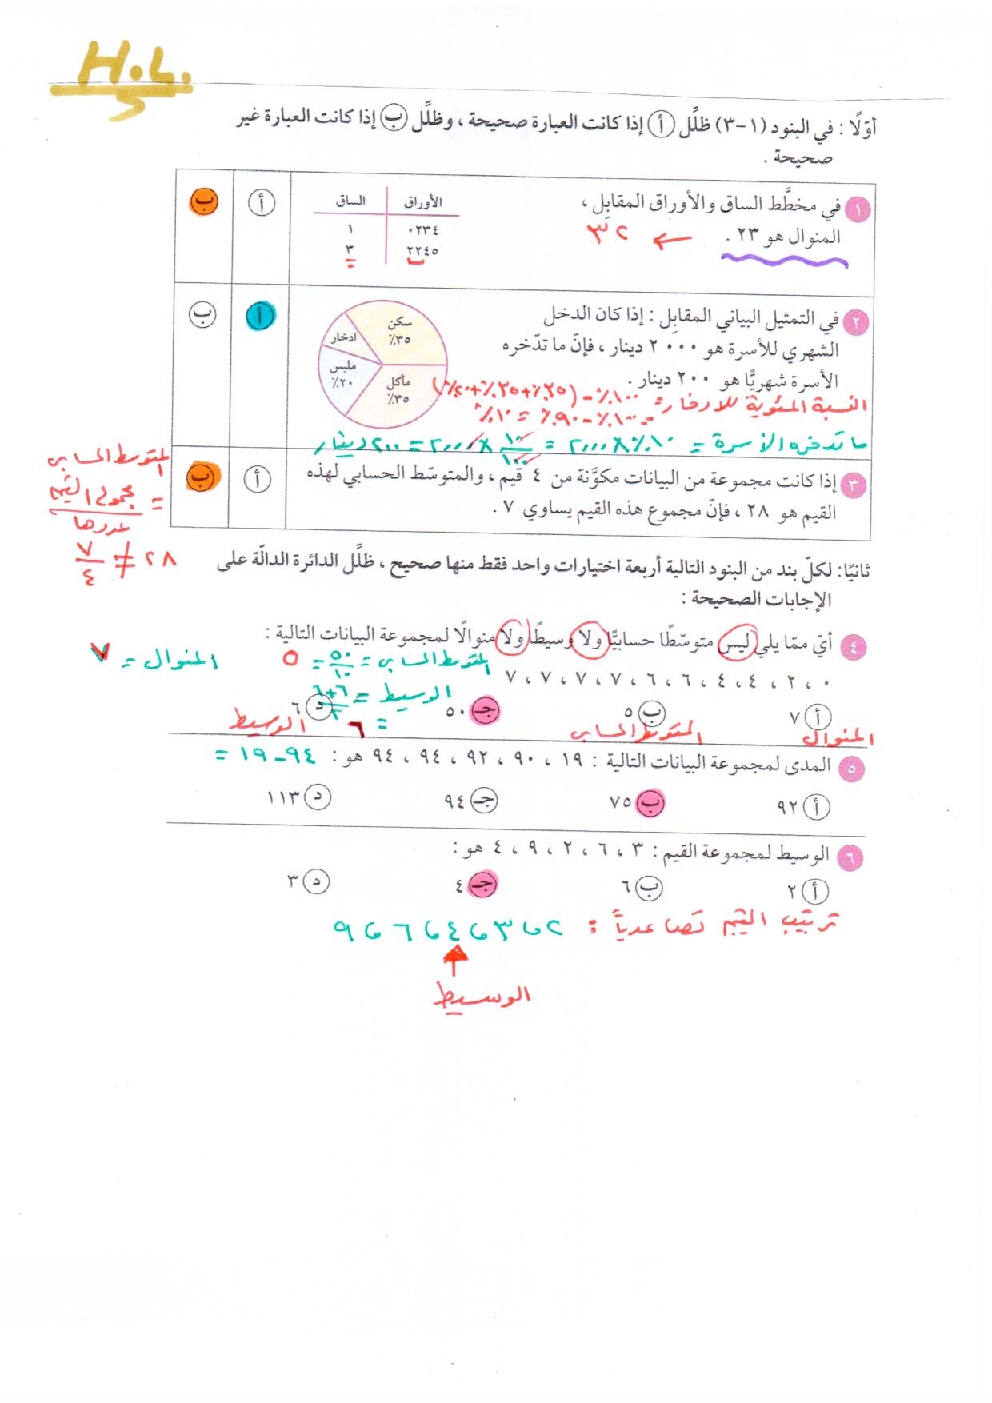 H.L.
أوّلًا : في البنود (١-٣) ظلّل أ إذا كانت العبارة صحيحة ، وظلّل ب إذا كانت العبارة غير
صحيحة .
١ في مخطَّط الساق والأوراق المقابِل ،
المنوال هو ٢٣ . ← ٣٢
الساق الأوراق
١ ٠٢٣٤
٣ ٢٢٤٥
أ ب
٢ في التمثيل البياني المقابِل : إذا كان الدخل
الشهري للأسرة هو ٢٠٠٠ دينار ، فإنّ ما تدّخره
الأسرة شهريًّا هو ٢٠٠ دينار .
سكن
٣٥٪
ادخار
ملبس
٢٠٪
مأكل
٣٥٪
أ ب
النسبة المئوية للادخار = ١٠٠٪ - (٣٥٪ + ٣٥٪ + ٢٠٪)
= ١٠٠٪ - ٩٠٪ = ١٠٪
ما تدخره الأسرة = ١٠٪ × ٢٠٠٠ = ١٠/١٠٠ × ٢٠٠٠ = ٢٠٠ دينار
٣ إذا كانت مجموعة من البيانات مكوَّنة من ٤ قيم ، والمتوسّط الحسابي لهذه
القيم هو ٢٨ ، فإنّ مجموع هذه القيم يساوي ٧ .
أ ب
المتوسط الحسابي
= مجموع القيم / عددها
٧/٤ ≠ ٢٨
ثانيًا: لكلّ بند من البنود التالية أربعة اختيارات واحد فقط منها صحيح ، ظلّل الدائرة الدالّة على
الإجابات الصحيحة :
٤ أيّ ممّا يلي ليس متوسّطًا حسابيًّا ولا وسيطًا ولا منوالًا لمجموعة البيانات التالية :
٠ ، ٢ ، ٤ ، ٤ ، ٦ ، ٦ ، ٧ ، ٧ ، ٧ ، ٧
المتوسط الحسابي = ٥٠/١٠ = ٥
المنوال = ٧
الوسيط = ٦+٦/٢
= ٦
أ ٧ ب ٥ جـ ٥٠ د ٦
المنوال المتوسط الحسابي الوسيط
٥ المدى لمجموعة البيانات التالية : ١٩ ، ٩٠ ، ٩٢ ، ٩٤ ، ٩٤ هو : ٩٤-١٩ =
أ ٩٢ ب ٧٥ جـ ٩٤ د ١١٣
٦ الوسيط لمجموعة القيم : ٣ ، ٦ ، ٢ ، ٩ ، ٤ هو :
أ ٢ ب ٦ جـ ٤ د ٣
ترتيب القيم تصاعدياً : ٢ ، ٣ ، ٤ ، ٦ ، ٩
الوسيط